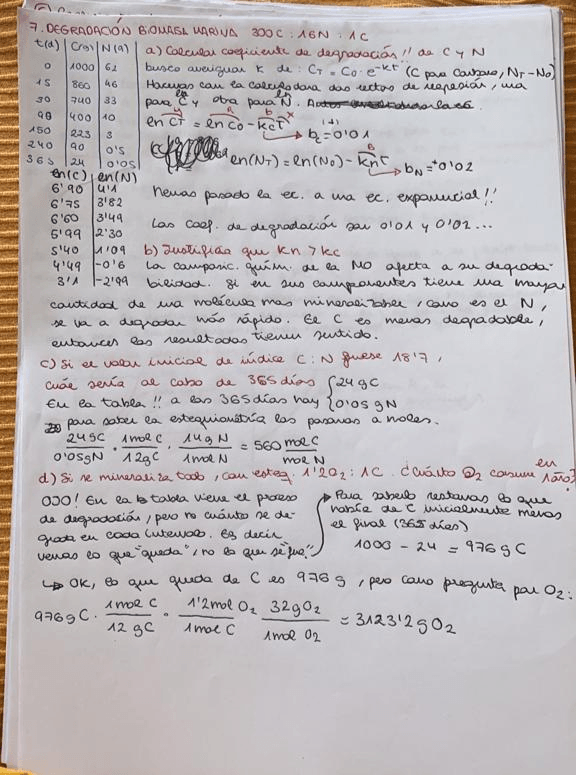 7. DEGRADACIÓN BIOMASA MARINA 300C : 16N : 1C
t(d) C(g) N(g) a) Calcular coeficiente de degradación!! de C y N
0 1000 62 busco averiguar K de: CT = C0 · e^-kt (C para carbono, NT - N0)
15 860 46 Hacemos con la calculadora dos rectas de regresión, una
30 740 33 para C y otra para N.
90 400 10 ln CT = ln C0 - kcT
150 223 3 bc = 0'01
240 90 0'5 ln(NT) = ln(N0) - knt bN = +0'02
365 24 0'05
ln(C) ln(N)
6'90 4'1 hemos pasado la ec. a una ec. exponencial!!
6'75 3'82
6'60 3'49 Los coef. de degradación son 0'01 y 0'02...
5'99 2'30
5'40 1'09 b) Justifica que kn > kc
4'49 -0'6 La composic. quím. de la MO afecta a su degrada-
3'1 -2'99 bilidad. Si en sus componentes tiene una mayor
cantidad de una molécula mas mineralizable, como es el N,
se va a degradar más rápido. El C es menos degradable,
entonces los resultados tienen sentido.
c) Si el valor inicial de índice C:N fuese 18'7,
cuál sería al cabo de 365 días { 24 gC
En la tabla!! a los 365 días hay { 0'05 gN
para saber la estequiometría los pasamos a moles.
24gC / 0'05gN · 1mol C / 12gC · 14gN / 1mol N = 560 mol C / mol N
d) Si se mineraliza todo, con esteq. 1'2O2 : 1C. ¿Cuánto O2 consume en 1 año?
OJO! En la tabla viene el proceso
de degradación, pero no cuánto se de-
grada en cada intervalo. Es decir,
vemos lo que "queda", no lo que se "fue."
Para saberlo restamos lo que
había de C inicialmente menos
el final (365 días)
1000 - 24 = 976 g C
↳ OK, lo que queda de C es 976 g, pero como pregunta por O2:
976g C · 1mol C / 12 gC · 1'2mol O2 / 1mol C · 32gO2 / 1mol O2 = 3123'2g O2